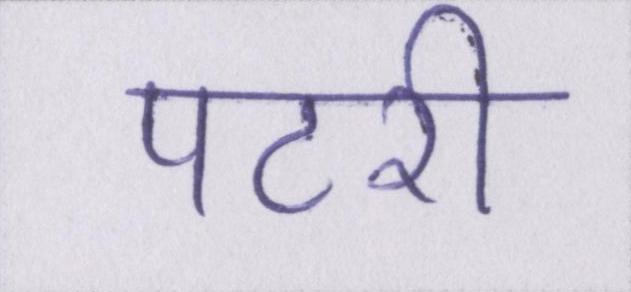 पटरी